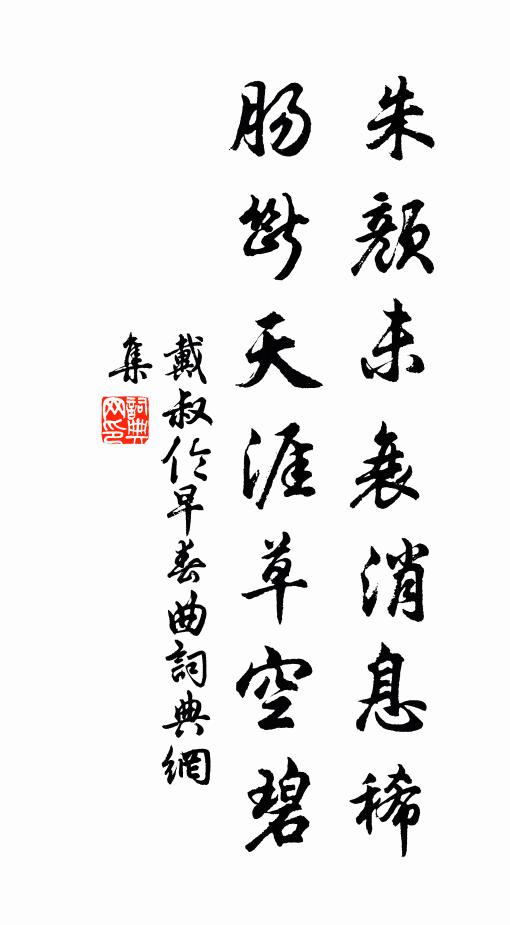 朱顏未衰消息稀
腸斷天涯草空碧
戴叔伦早春曲詞典網
集
詞典
网印